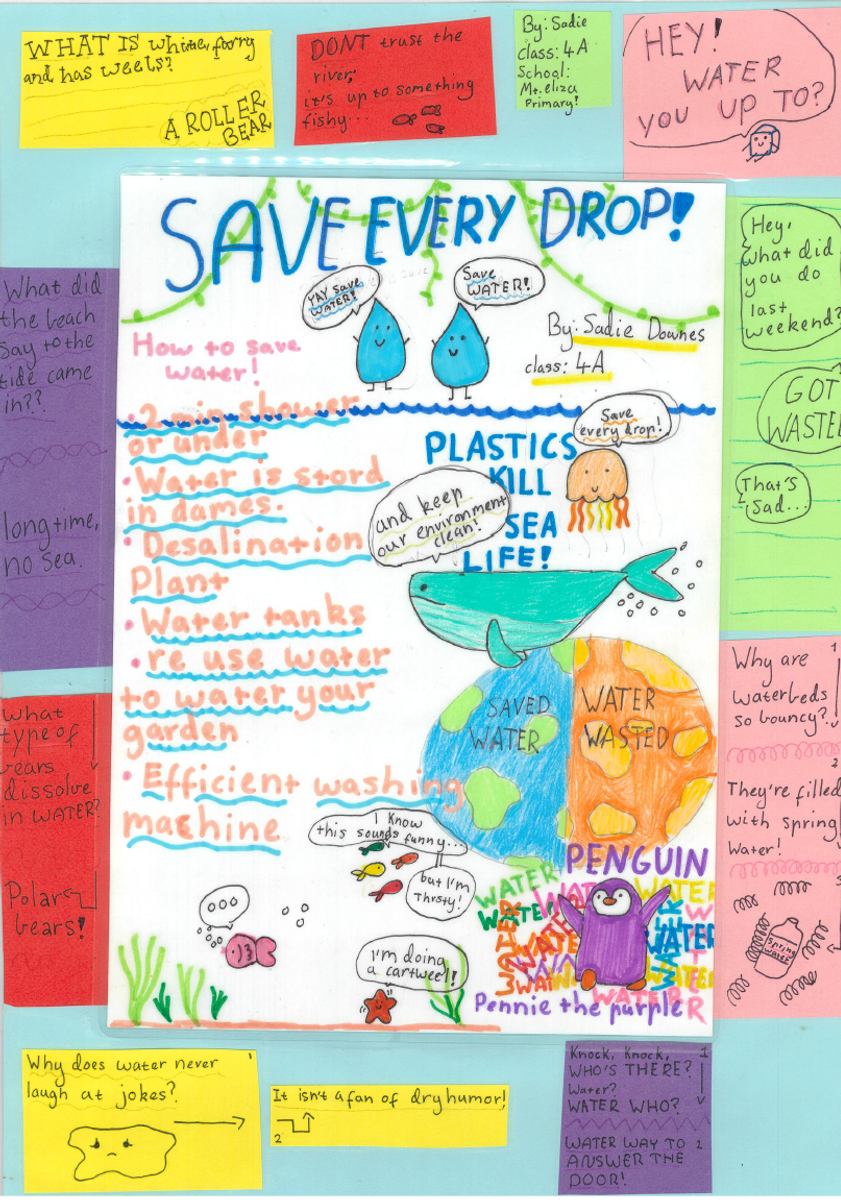 WHAT IS white, furry
and has weels?
A ROLLER
BEAR
DONT trust the
river,
it's up to something
fishy...
By: Sadie
class: 4A
School:
Mt. eliza
Primary!
HEY!
WATER
you UP TO?
SAVE EVERY DROP!
YAY save
WATER!
Save
WATER!
By: Sadie Downes
class: 4A
How to save
water!
• 2 min shower
or under
• Water is stord
in dames.
• Desalination
Plant
• Water tanks
• re use water
to water your
garden
• Efficient washing
machine
Save
every drop!
PLASTICS
KILL
SEA
LIFE!
and keep
our environment
clean!
SAVED
WATER
WATER
WASTED
I know
this sounds funny...
but I'm
Thrsty!
I'm doing
a cartweel!
PENGUIN
WATER
WATER
WATER
WATER
WATER
WATER
WATER
WATER
Pennie the purple
What did
the beach
Say to the
tide came
in??
long time,
no sea.
What
type of
ears
dissolve
in WATER?
Polar
bears!
Hey,
what did
you do
last
weekend?
GOT
WASTED
That's
Sad...
Why are 1
waterbeds
so bouncy?
2
They're filled
with spring
Water!
spring
water
Why does water never 1
laugh at jokes?
It isn't a fan of dry humor!
2
Knock, Knock, 1
WHO'S THERE?
Water?
WATER WHO?
WATER WAY TO 2
ANSWER THE
DOOR!